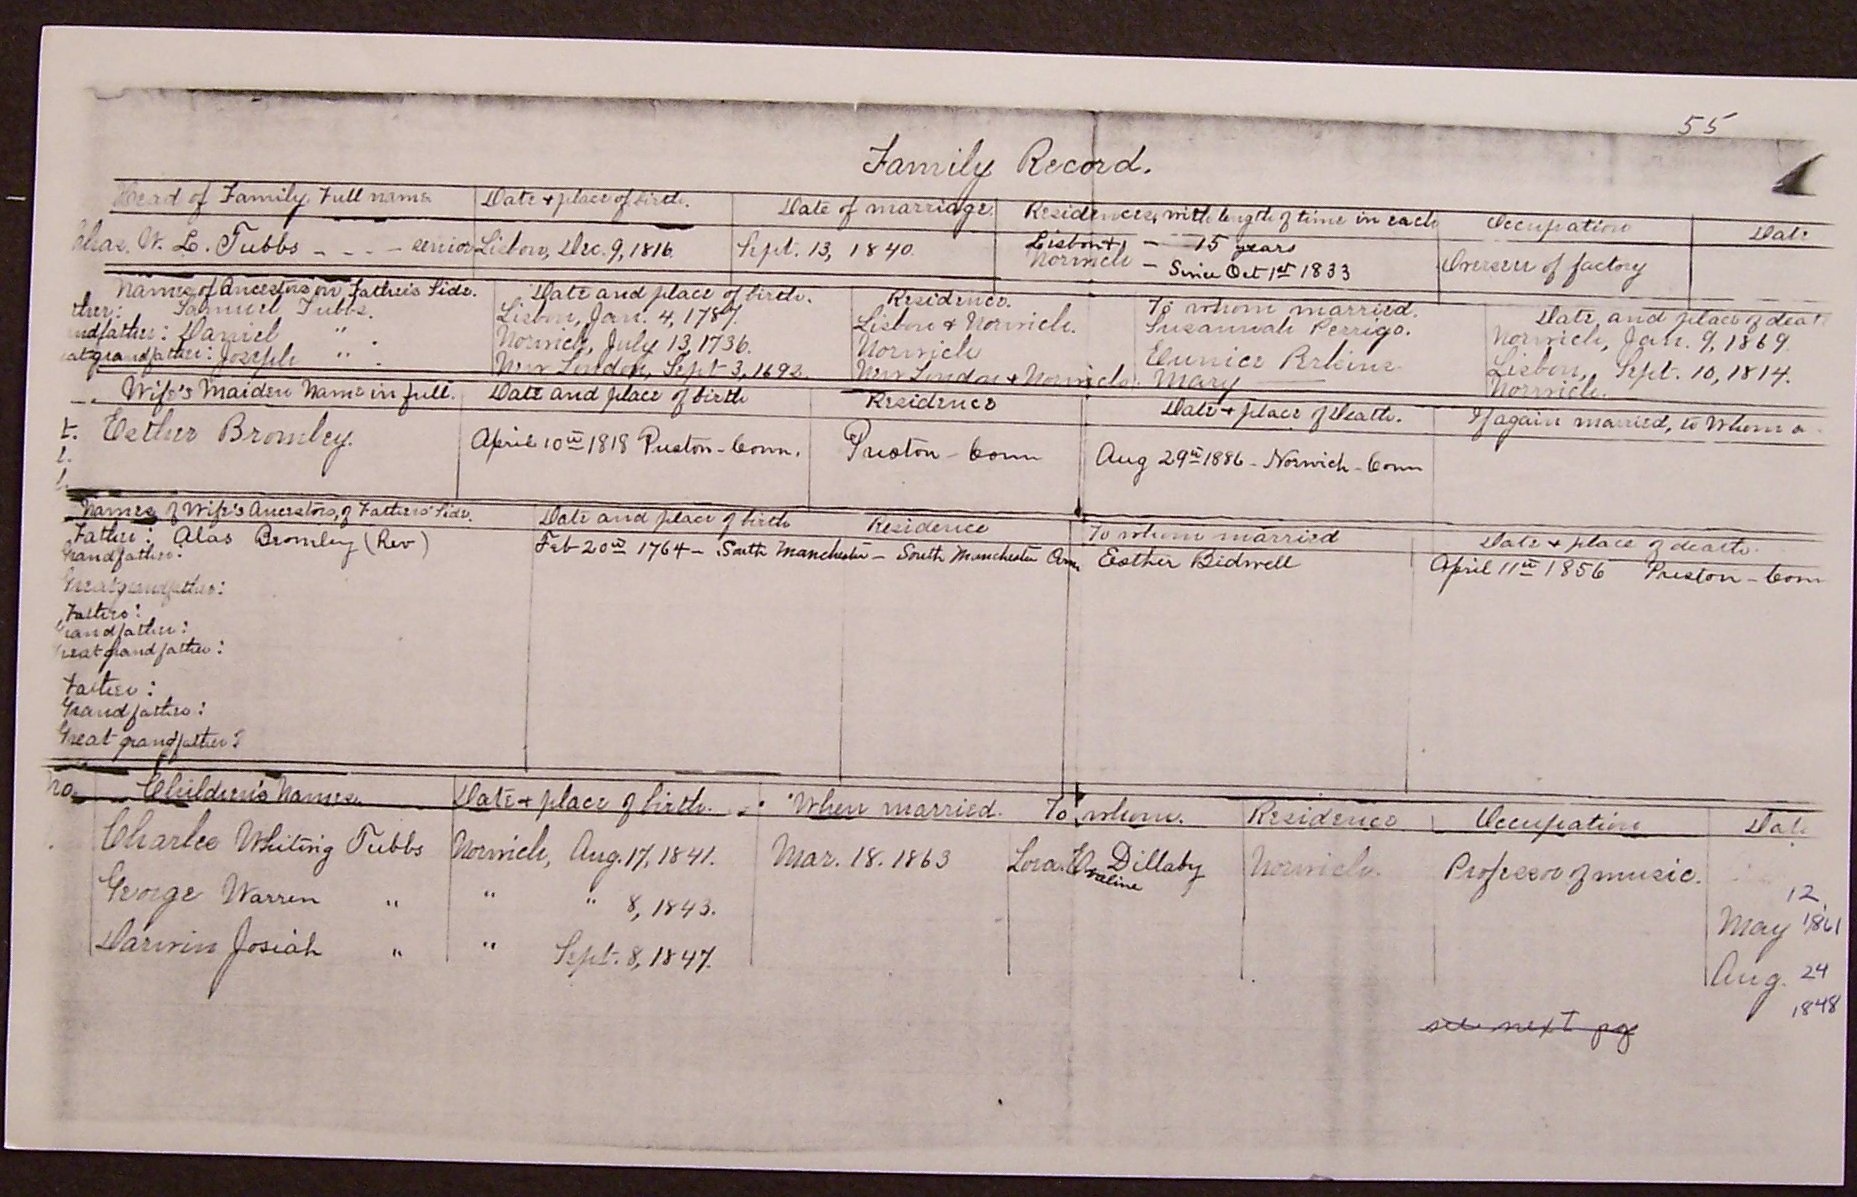 55
Family Record.
Head of Family Full name Date + place of birth. Date of marriage Residences, with length of time in each Occupation Date
Chas. W. L. Tubbs - - - senior Lisbon, Dec. 9, 1816. Sept. 13, 1840. Lisbon - 15 years Overseer of factory
Norwich - Since Oct 1st 1833
Names of Ancestors on Father's Side. Date and place of birth. Residence. To whom married. Date and place of deat
ther: Samuel Tubbs. Lisbon, Jan. 4, 1787. Lisbon & Norwich. Susannah Perrigo. Norwich, Jan. 9, 1869.
ndfather: Daniel " . Norwich, July 13, 1736. Norwich Eunice Perkins Lisbon, Sept. 10, 1814.
atgrandfather: Joseph " . New London, Sept 3, 1692. New London & Norwich. Mary —— Norwich.
Wife's Maiden Name in full. Date and place of birth Residence Date + place of Death. If again married, to Whom a
Esther Bromley. April 10th 1818 Preston - Conn. Preston - Conn Aug 29th 1886 - Norwich - Conn
Names of Wife's Ancestors, of Father's Side. Date and place of birth Residence To whom married Date + place of death.
Father: Alas Bromley (Rev) Feb 20th 1764 - South Manchester - South Manchester Conn Esther Bidwell April 11th 1856 Preston - Conn
Grandfather:
Great grandfather:
Father:
Grandfather:
Great grandfather:
Father:
Grandfather:
Great grandfather:
No. Children's Names. Date + place of birth. When married. To whom. Residence Occupation Date
Charles Whiting Tubbs Norwich, Aug. 17, 1841. Mar. 18. 1863 Lora. Evaline Dillaby Norwich. Professor of music.
George Warren " " " 8, 1843. May 12, 1861
Darwin Josiah " " Sept. 8, 1847. Aug. 24 1848
see next pg